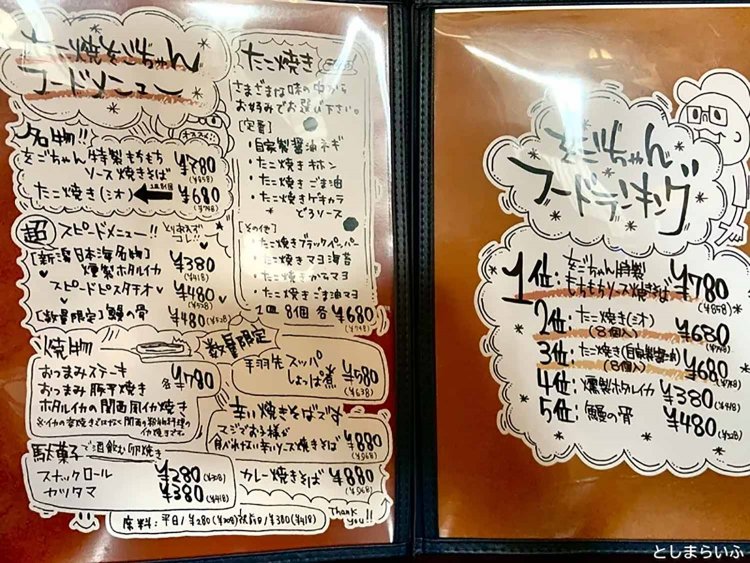 たこ焼きそごちゃん
フードメニュー
名物!!
オススメ!!
そごちゃん特製もちもち
ソース焼きそば ¥780
(¥858)
たこ焼き(ミオ) 1皿8個 ¥680
(¥748)
超スピードメニュー!! とりあえずコレ!!
[新潟日本海名物]
燻製ホタルイカ ¥380
(¥418)
スピードピスタチオ ¥480
(¥528)
[数量限定]鰻の骨 ¥480
(¥528)
焼物
おつまみステーキ
おつまみ豚平焼き 各¥780
ホタルイカの関西風イカ焼き
駄菓子で酒飲む卵焼き
スナックロール ¥280(¥308)
カツタマ ¥380(¥418)
たこ焼き
さまざまな味の中から
お好みでお選び下さい。
[定番]
・自家製醤油ネギ
・たこ焼きキホン
・たこ焼きごま油
・たこ焼きゲキカラ
どろソース
[その他]
・たこ焼きブラックペッパー
・たこ焼きマヨ海苔
・たこ焼きからマヨ
・たこ焼きごま油マヨ
1皿8個 各¥680
(¥748)
数量限定
手羽先スッパ
しょっぱ煮 ¥580
(¥638)
辛い焼きそばです
スジでお子様が
食べれない辛いソース焼きそば ¥880
(¥968)
カレー焼きそば ¥880
(¥968)
席料:平日/¥280(¥308)祝前日/¥380(¥418)
Thank you!!
そごちゃん
フードランキング
1位:そごちゃん特製
もちもちソース焼きそば ¥780
(¥858)
2位:たこ焼き(ミオ)
(8個入) ¥680
(¥748)
3位:たこ焼き(自家製醤油)
(8個入) ¥680
(¥748)
4位:燻製ホタルイカ ¥380
(¥418)
5位:鰻の骨 ¥480
(¥528)
としまらいふ